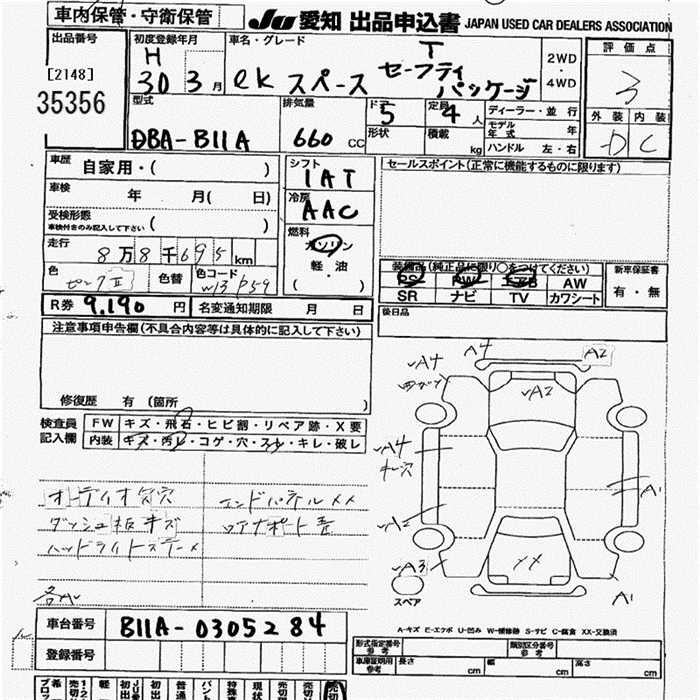 車内保管・守衛保管
JU 愛知 出品申込書 JAPAN USED CAR DEALERS ASSOCIATION
出品番号
[2148]
35356
初度登録年月
H
30 3月
車名・グレード
T
ek スペース セーフティ
パッケージ
2WD
・
4WD
評価点
3
外装 内装
D C
型式
DBA-B11A
排気量
660 CC
ドア
5
形状
定員
4人
積載
kg
ディーラー・並行
モデル年式 年
ハンドル 左・右
車歴
自家用・( )
車検
年 月( 日)
受検形態
車検付きのみ記入して下さい ( )
走行
8万8千695km
色
ピンクⅡ
色替
色コード
W13 P59
シフト
IAT
冷房
AAC
燃料
ガソリン
軽・油
( )
セールスポイント(正常に機能するものに限ります)
装備品(純正品に限り○をつけてください)
PS PW エアB AW
SR ナビ TV カワシート
新車保証書
有・無
後日品
R券 9,190 円
名変通知期限 月 日
注意事項申告欄(不具合内容等は具体的に記入して下さい)
修復歴 有(箇所 )
検査員
記入欄
FW キズ・飛石・ヒビ割・リペア跡・X要
内装 キズ・汚レ・コゲ・穴・スレ・キレ・破レ
オーディオ欠穴
ダッシュ板キズ
ヘッドライトステーメ
エンドパネルXX
A4
A4
A2
A2
A4
A2
A1
A3
XX
A1
スペア
A-キズ E-エクボ U-凹み W-補修跡 S-サビ C-腐食 XX-交換済
各A
車台番号
B11A-0305284
登録番号
形式指定番号
参考
類別区分番号
参考
車庫証明用
参考
長さ cm
幅 cm
高さ cm